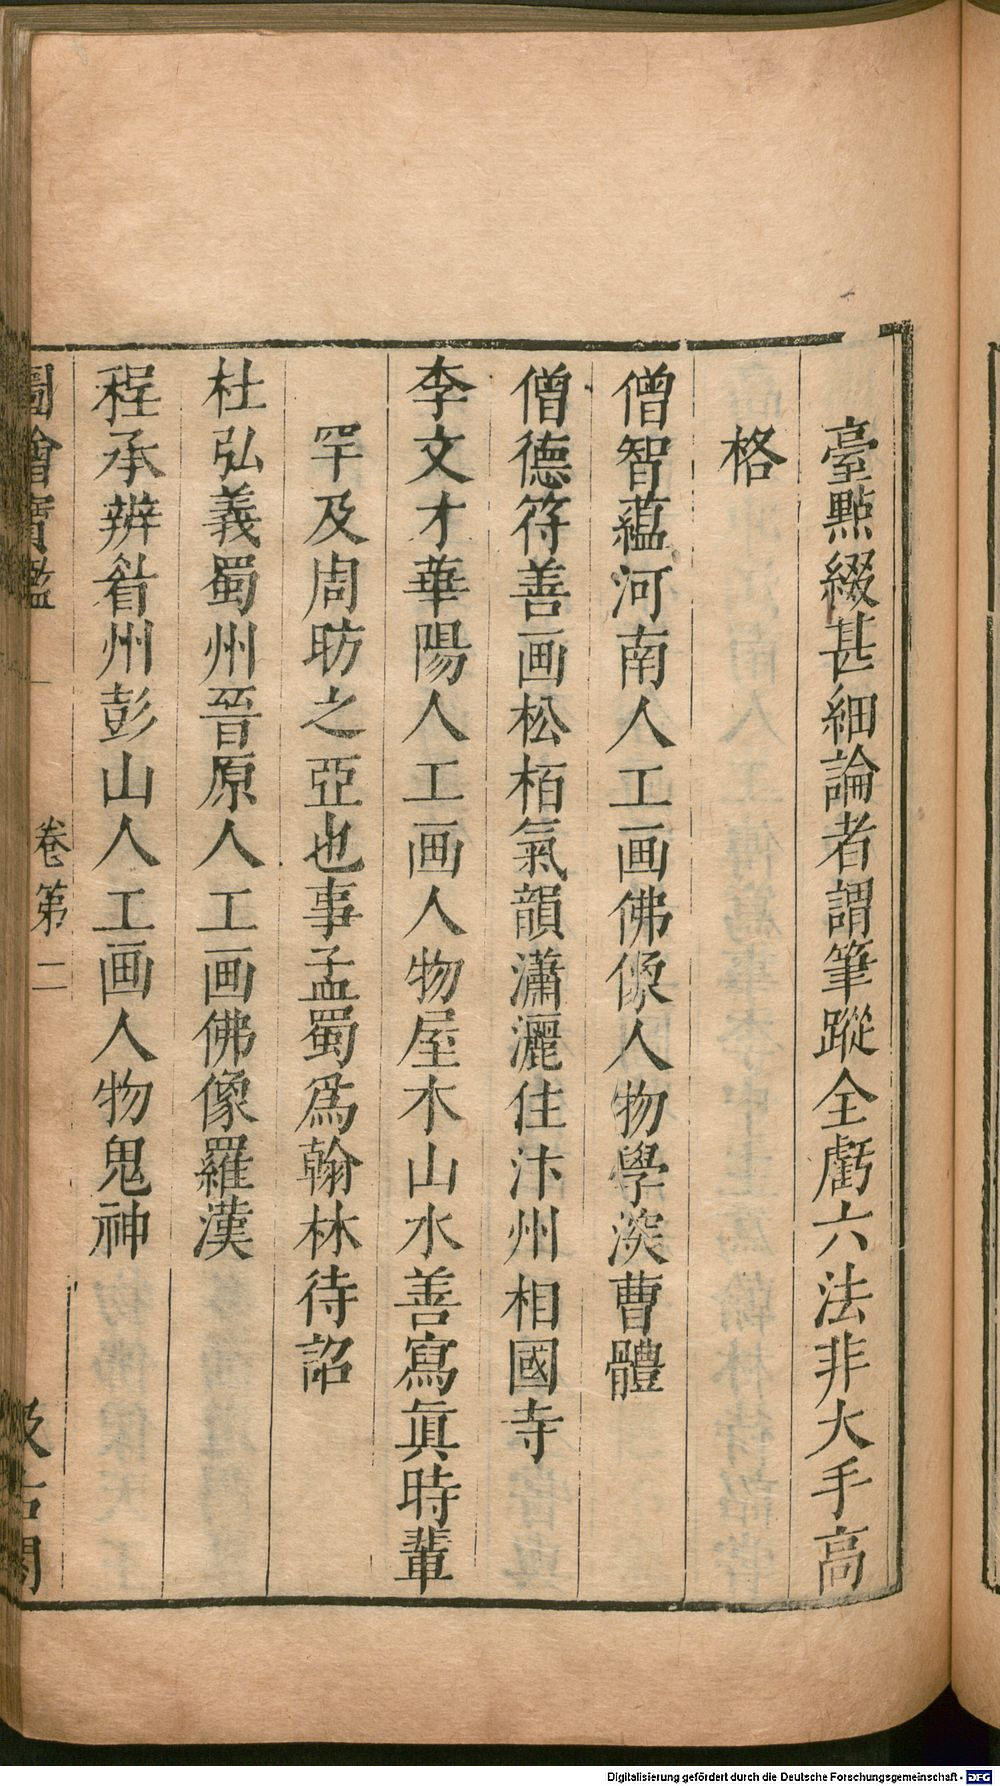 臺點綴甚細論者謂筆蹤全虧六法非大手高
格
僧智蘊河南人工画佛像人物學深曹體
僧德符善画松栢氣韻瀟灑住汴州相國寺
李文才華陽人工画人物屋木山水善寫眞時輩
罕及周昉之亞也事孟蜀爲翰林待詔
杜弘義蜀州晉原人工画佛像羅漢
程承辨眉州彭山人工画人物鬼神
圖繪寶鑑 卷第二 汲古閣
Digitalisierung gefördert durch die Deutsche Forschungsgemeinschaft - DFG